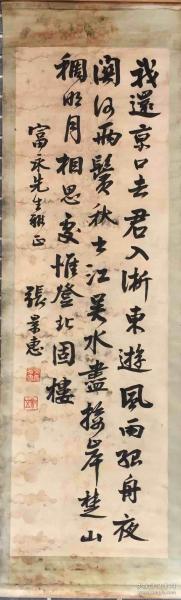 我還京口去君入浙東遊風雨孤舟夜
關河兩鬢秋出江吳水盡接岸楚山
稠明月相思處惟登北固樓
富永先生雅正
張景惠